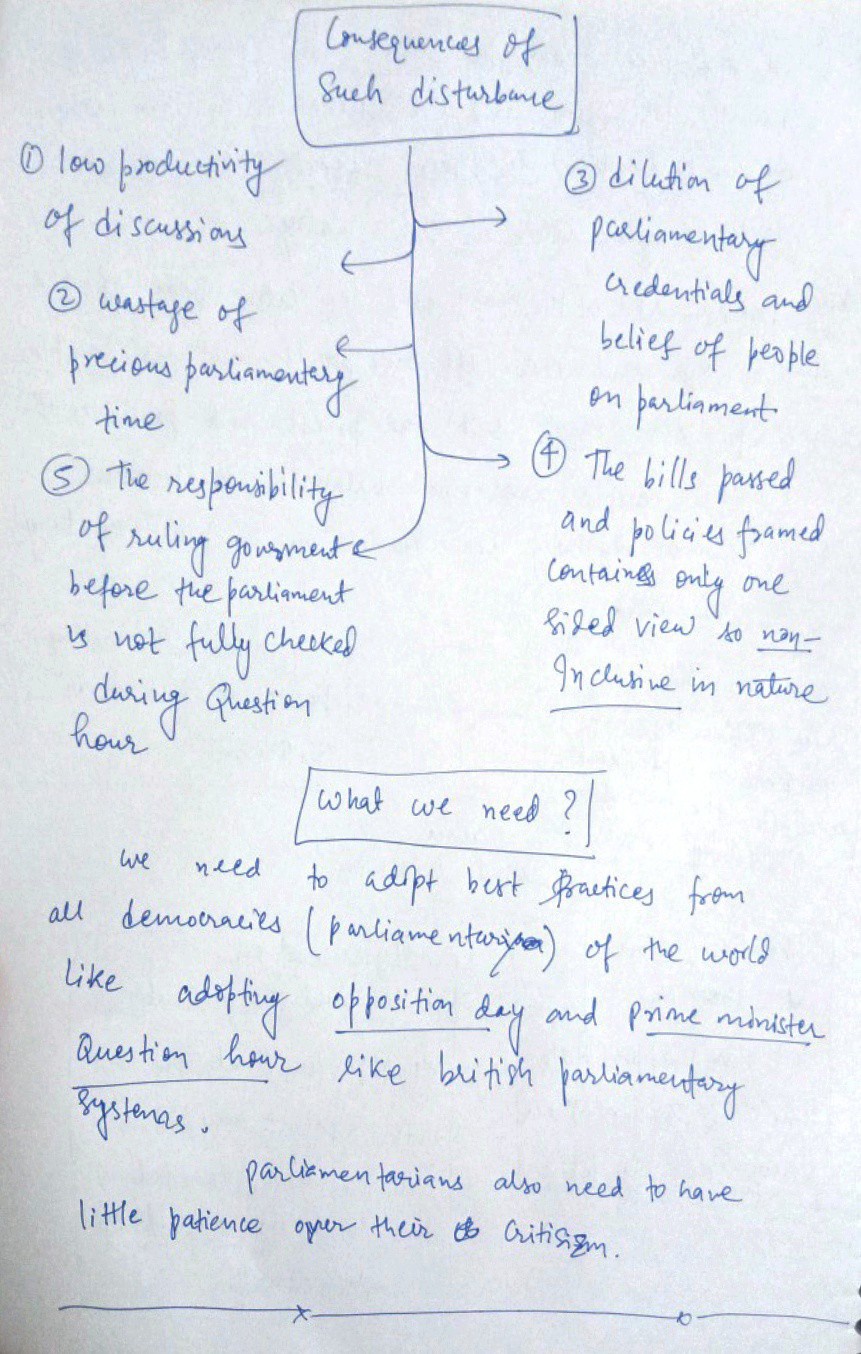 Consequences of
Such disturbance
① low productivity
of discussions
② wastage of
precious parliamentary
time
③ dilution of
parliamentary
credentials and
belief of people
on parliament
④ The bills passed
and policies framed
contains only one
sided view so non-
Inclusive in nature
⑤ The responsibility
of ruling government
before the parliament
is not fully checked
during Question
hour
What we need?
we need to adopt best practices from
all democracies (parliamentary) of the world
like adopting opposition day and prime minister
Question hour like british parliamentary
systems.
parliamentarians also need to have
little patience over their critisizm.